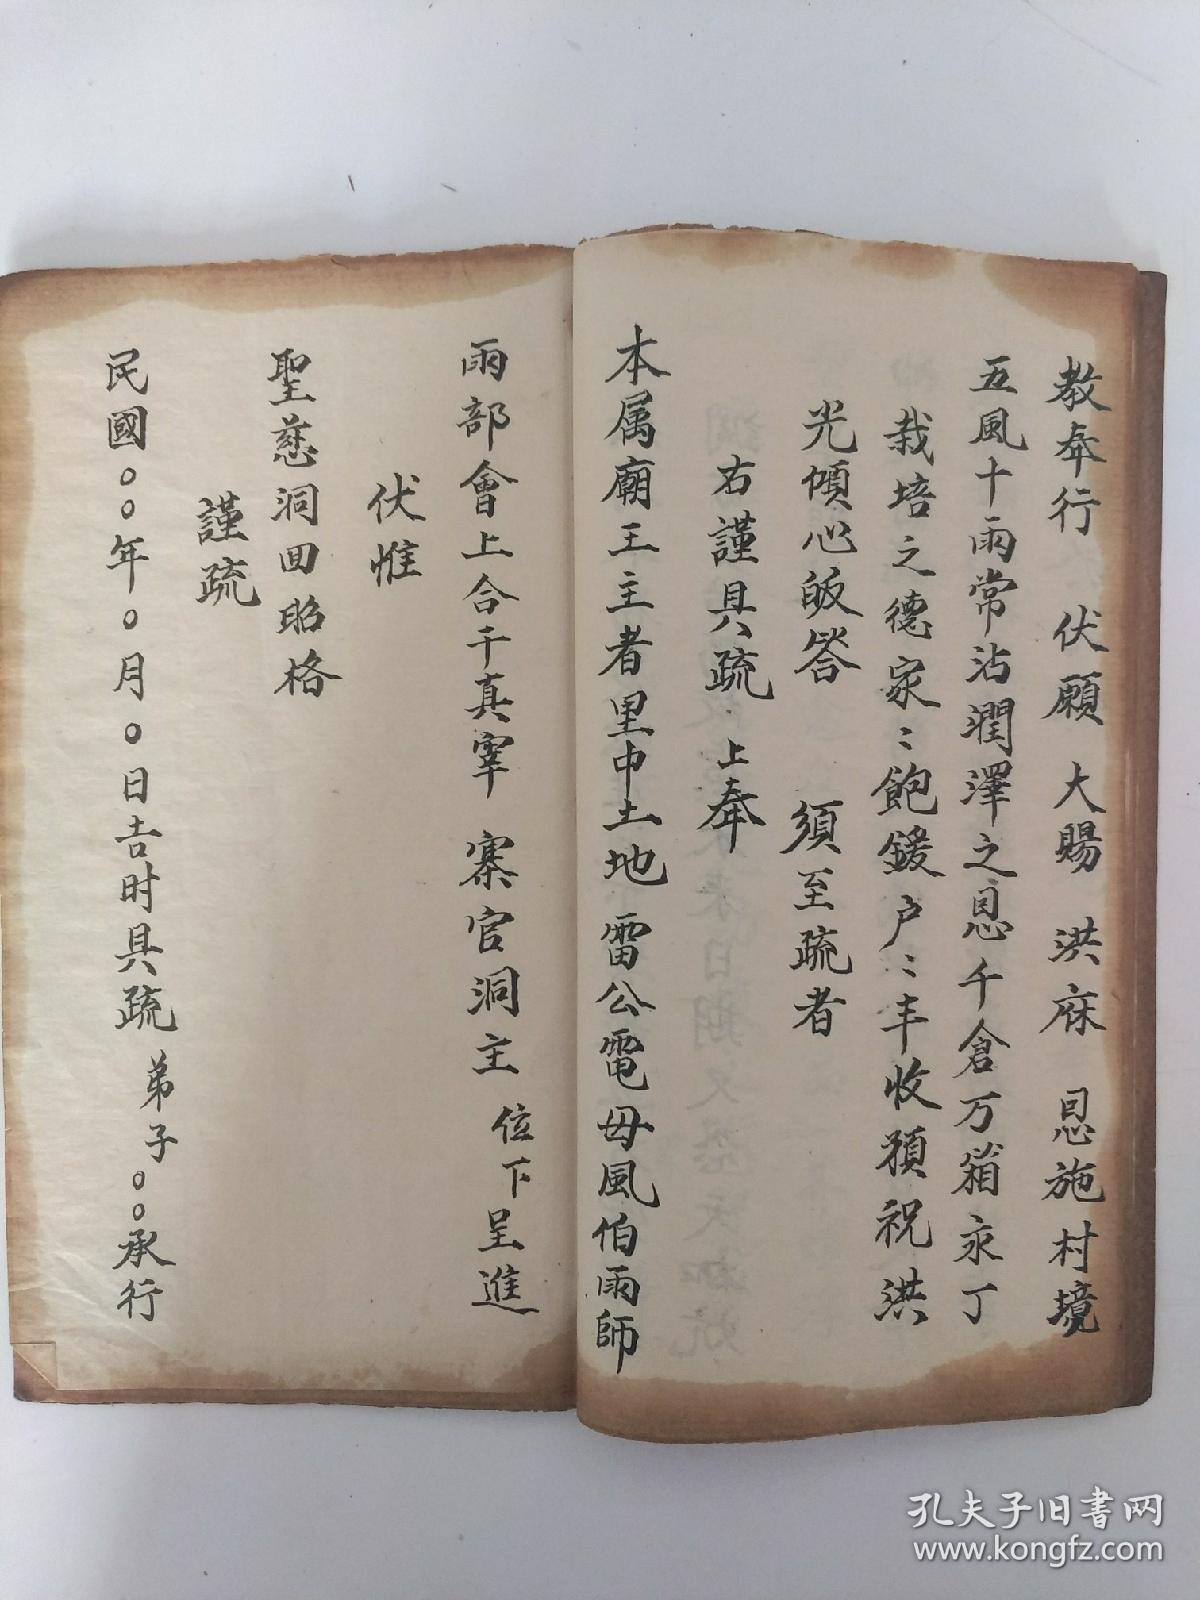 教奉行 伏願 大賜 洪庥 恩施村境
五風十雨常沾潤澤之恩千倉万箱永丁
栽培之德家〻飽鍰户〻丰收預祝洪
光傾心皈答 須至疏者
右謹具疏 上奉
本属廟王主者里中土地雷公電母風伯雨師
雨部會上合千真宰 寨官洞主 位下呈進
伏惟
聖慈洞回昭格
謹疏
民國〇〇年〇月〇日吉时具疏 弟子〇〇承行
孔夫子旧书网
www.kongfz.com